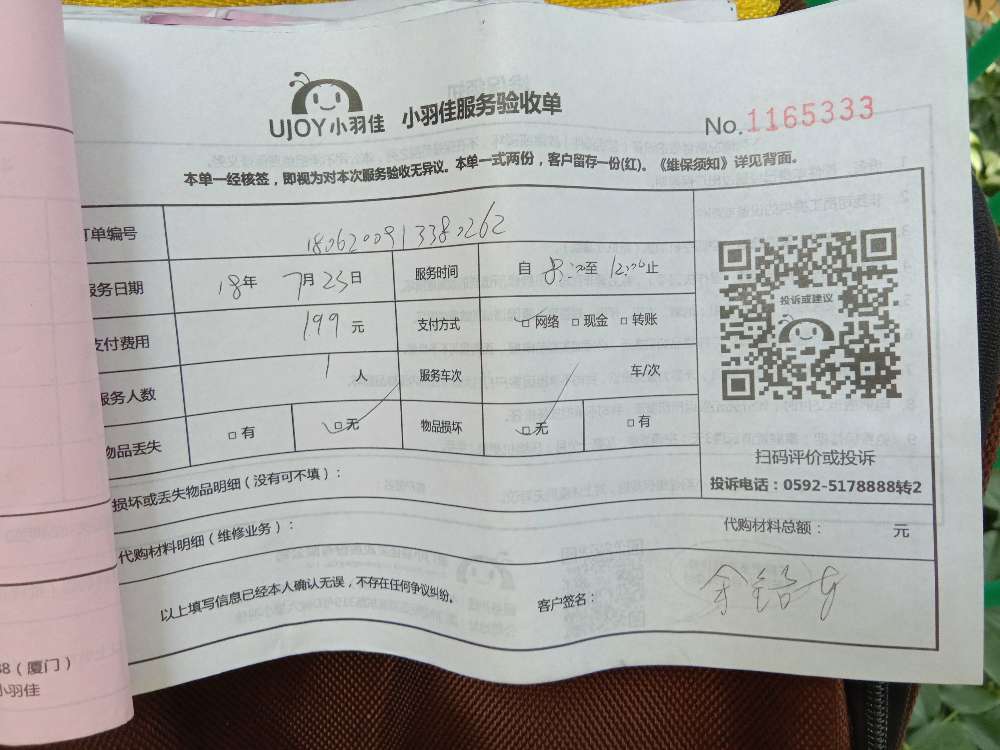 UJOY小羽佳 小羽佳服务验收单
No.1165333
本单一经核签，即视为对本次服务验收无异议。本单一式两份，客户留存一份(红)。《维保须知》详见背面。
订单编号 1806200913380262
服务日期 18年 7月23日 服务时间 自 8:00至 12:00止
支付费用 199元 支付方式 □网络 □现金 □转账
服务人数 1人 服务车次 车/次
物品丢失 □有 □无 物品损坏 □无 □有
投诉或建议
扫码评价或投诉
投诉电话：0592-5178888转2
损坏或丢失物品明细（没有可不填）：
代购材料明细（维修业务）：
代购材料总额： 元
以上填写信息已经本人确认无误，不存在任何争议纠纷。
客户签名：
88（厦门）
小羽佳